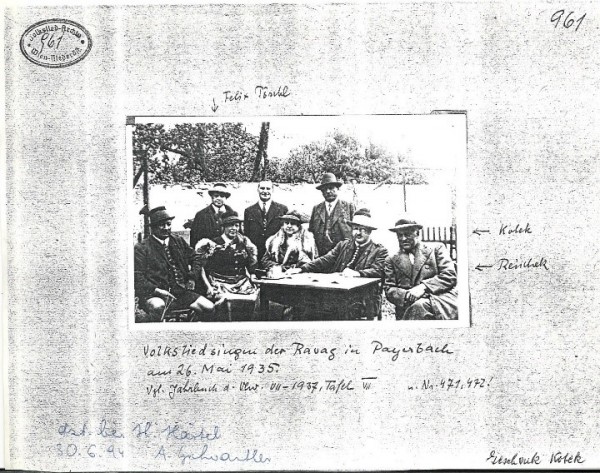 Volkslied-Archiv
961
Wien-Niederöst.
961
↓ Felix Pöschl
← Kotek
← Reischek
Volksliedsingen der Ravag in Payerbach
am 26. Mai 1935.
Vgl. Jahrbuch d. VLW. VII - 1937, Tafel VII u. Nr. 471, 472!
dzt. bei H. Härtel
30.6.94 A. Gschwantler
Geschenk Kotek